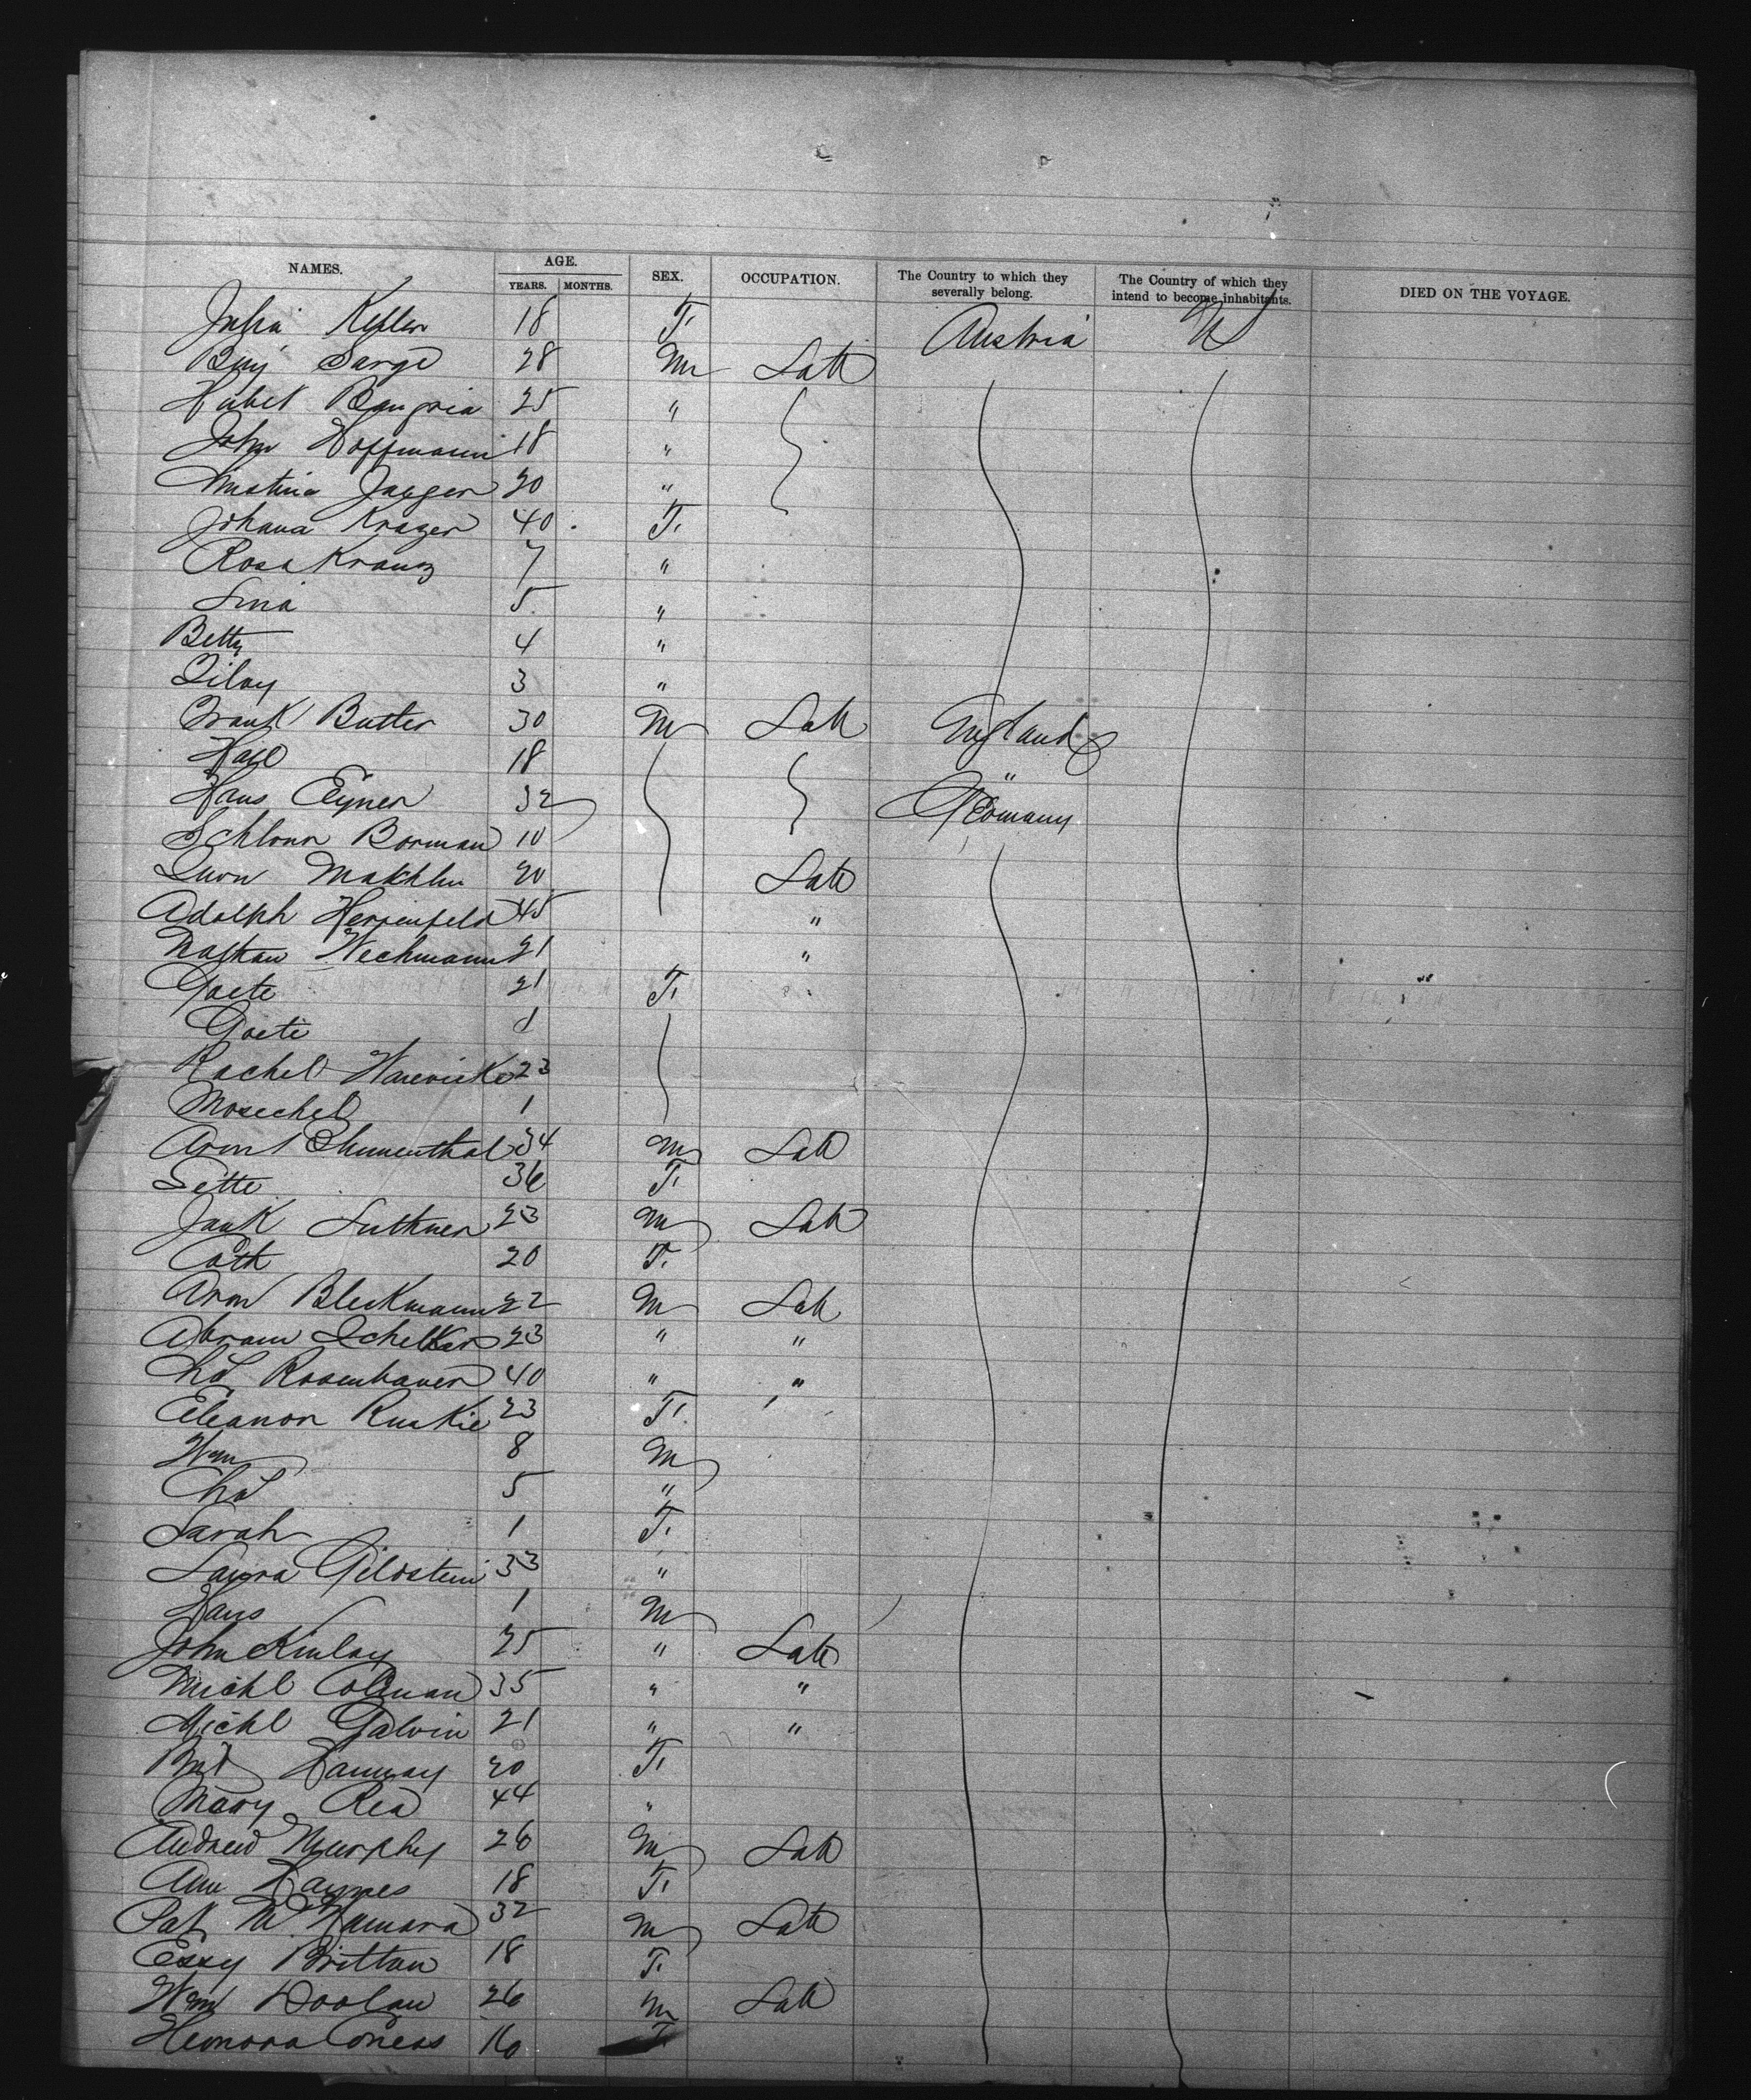 NAMES. AGE. SEX. OCCUPATION. The Country to which they severally belong. The Country of which they intend to become inhabitants. DIED ON THE VOYAGE.
YEARS. MONTHS.
Julia Keller 18 F. Austria US
Benj Sarge 28 M Lab
25 "
John Hoffmann 18 "
Jaeger 20 "
Johana Krager 40 F.
Rosa Kranz 7 "
Lina 5 "
Betty 4 "
3 "
Frank Butler 30 M Lab England
18 "
Hans Eyner 32 Germany
Borman 10
20 Lab
Adolph Herrenfeld 45 "
Nathan Wechmann 21 "
Goete 21 F.
Goete 1
Rachel 23
1
Aron Blumenthal 34 M Lab
Sette 36 F.
Luthner 23 M Lab
Cath 20 F.
Aron Bleckmann 22 M Lab
Abram 23 " "
Chs Rosenbauer 40 " "
Eleanor Ruskie 23 F.
Wm 8 M
Chs 5 "
Sarah 1 F.
Laura Gildstein 33 "
Hans 1 M
John Kinlay 25 " Lab
Michl Colman 35 " "
Michl Galvin 21 " "
Brid Hannay 20 F.
Mary Rea 44 "
Andrew Murphy 26 M Lab
Ann Haynes 18 F.
Pat McNamara 32 M Lab
Essy Brittan 18 F.
Wm Doolan 26 M Lab
Honora 16 F